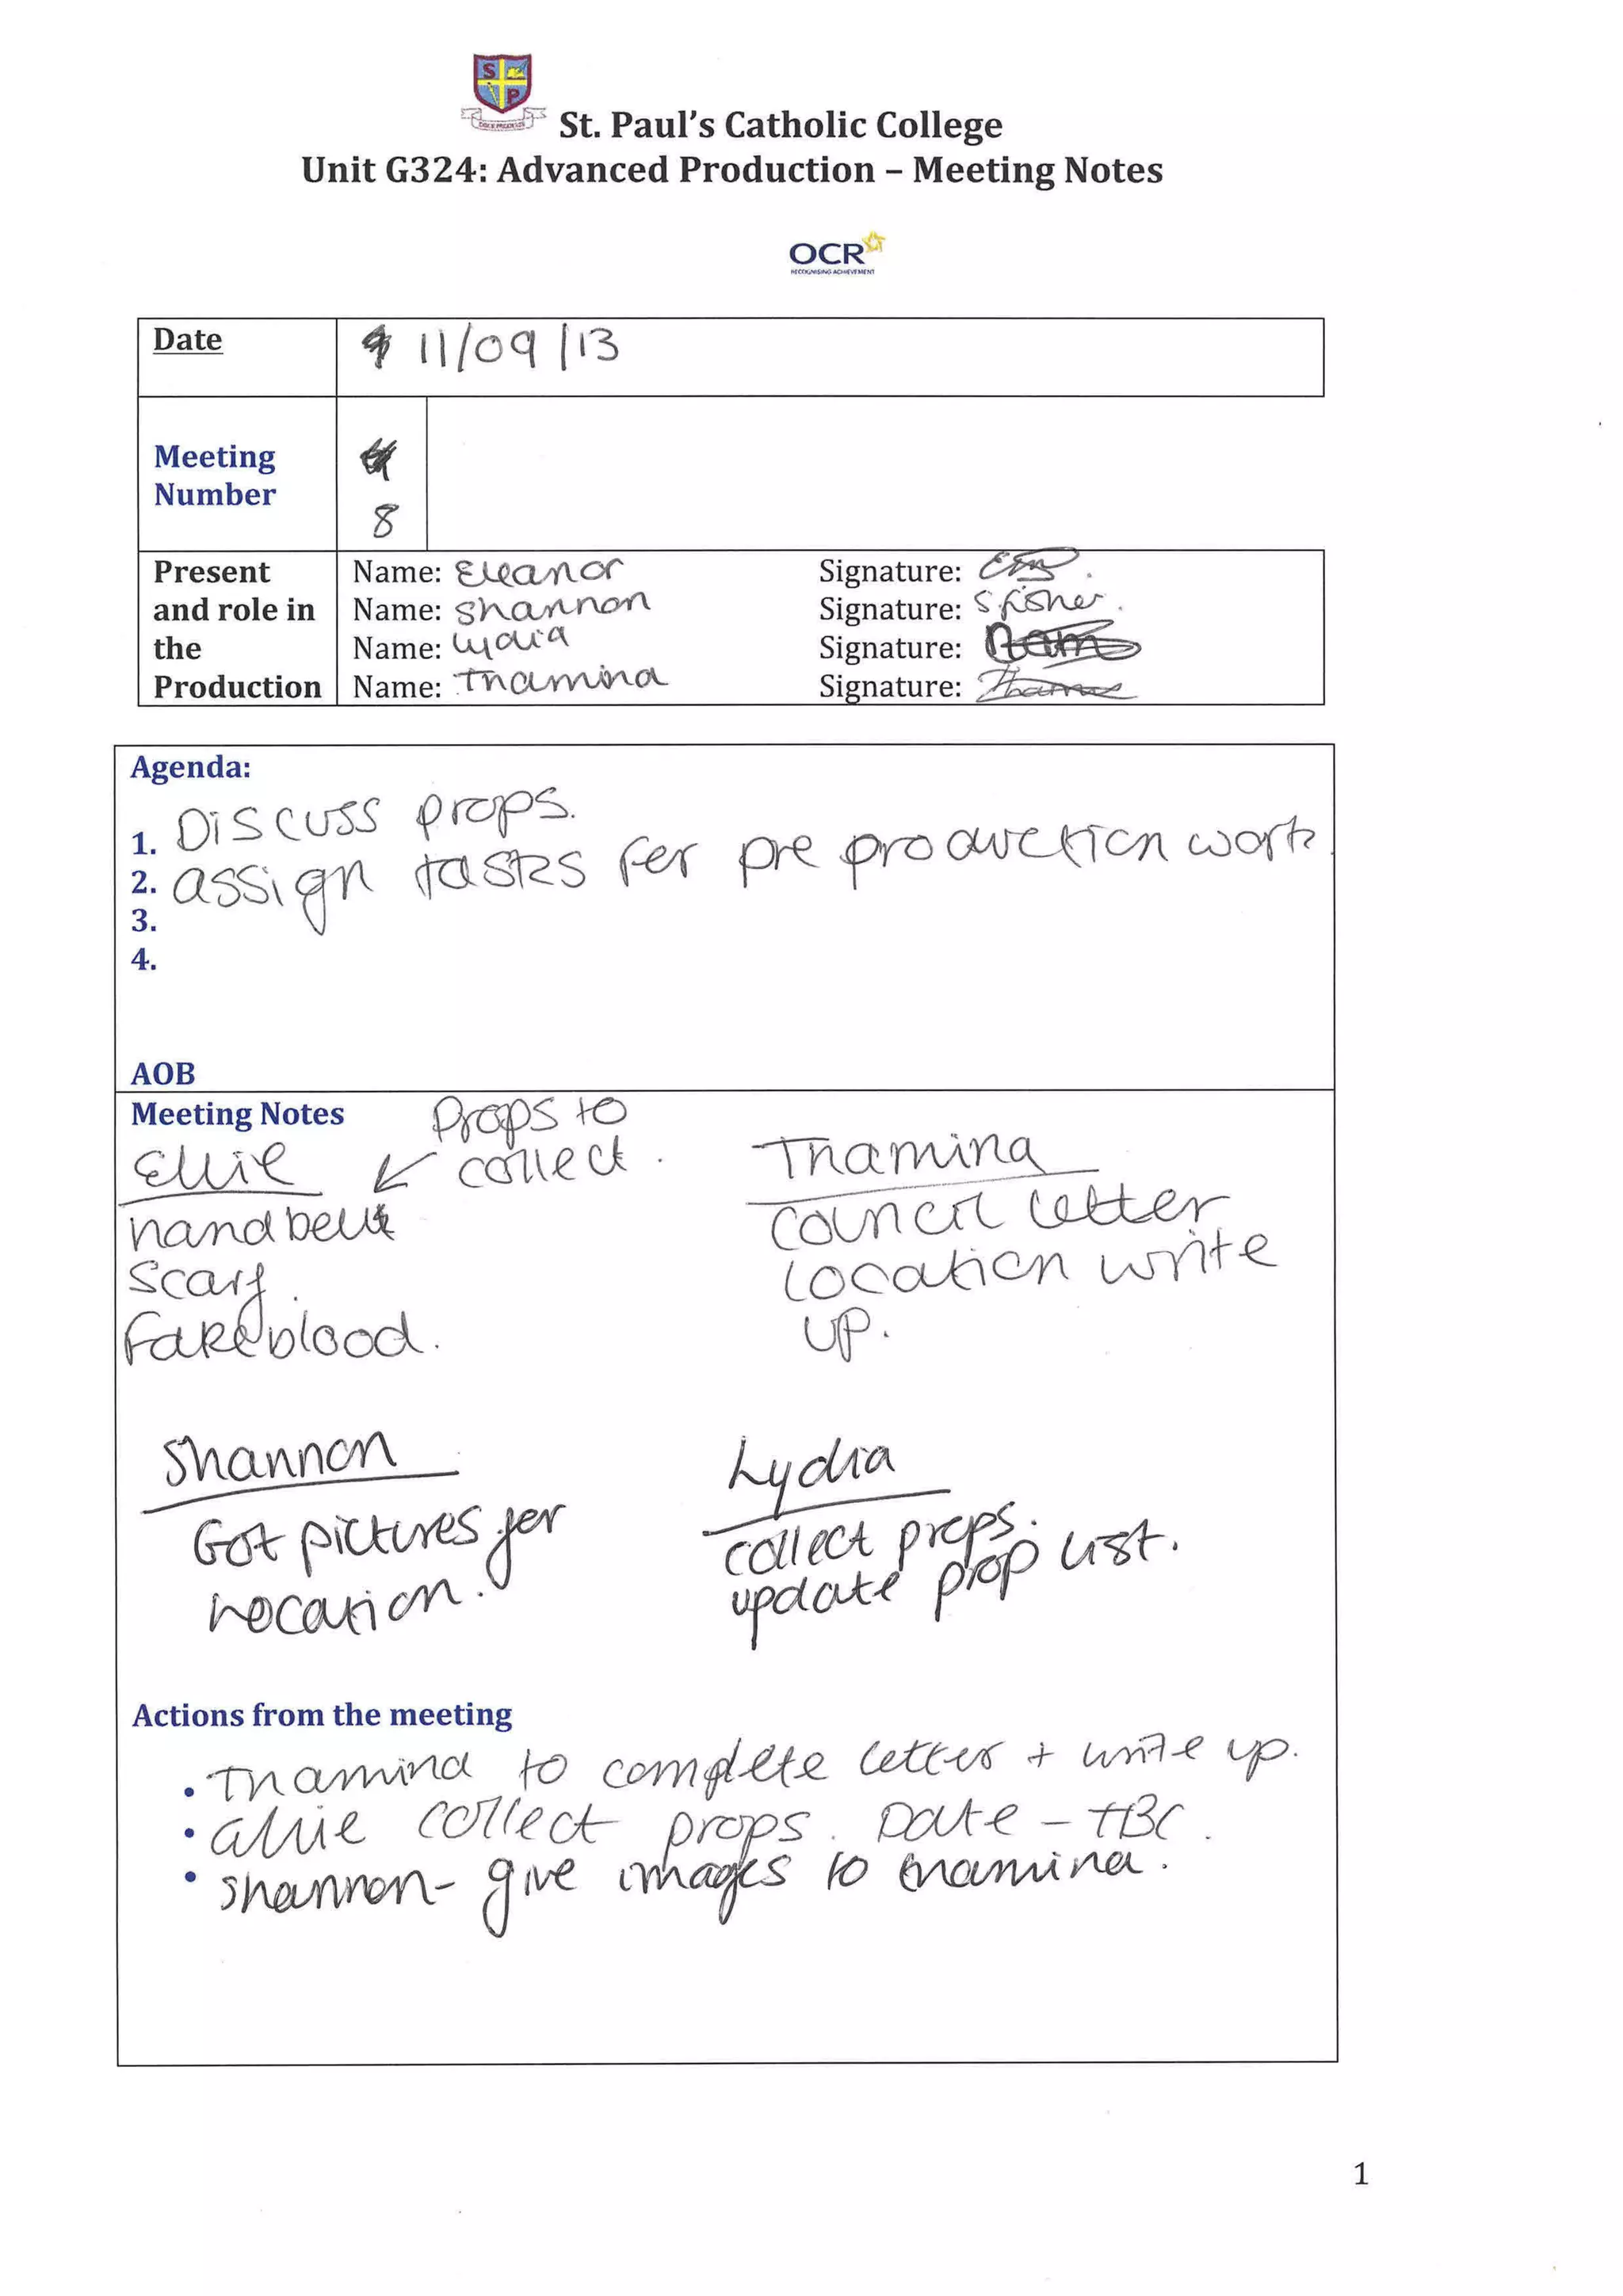 S P
St. Paul's Catholic College
Unit G324: Advanced Production – Meeting Notes
OCR
RECOGNISING ACHIEVEMENT
Date 11/09/13
Meeting
Number
8
Present Name: Eleanor Signature:
and role in Name: Shannon Signature: S fisher.
the Name: Lydia Signature:
Production Name: Thamina Signature:
Agenda:
1. Discuss props.
2. assign tasks for pre production work.
3.
4.
AOB
Meeting Notes
Props to
collect.
Ellie
hand bell
scarf.
Fake blood.
Thamina
Council letter
location write
up.
Shannon
Got pictures for
Location.
Lydia
collect props.
update prop list.
Actions from the meeting
• Thamina to complete letter + write up.
• collect props. Date – TBC.
• Shannon- give images to thamina.
1